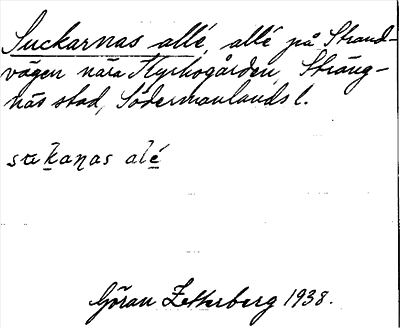 Suckarnas allé, allé på Strand-
vägen nära Kyrkogården, Sträng-
näs stad, Södermanlands l.
kanas alé
Göran Zetterberg 1938.